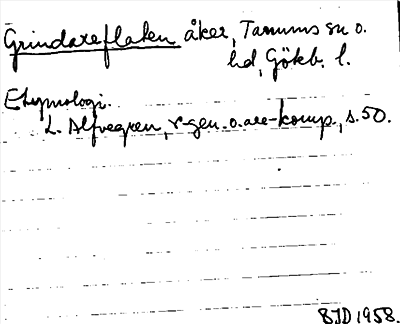 Grindareflaken åker, Tanums sn o.
hd, Gökb. l.
Etymologi.
L. Alfvegren, r-gen. o. are-komp., s. 50.
BJD 1958.